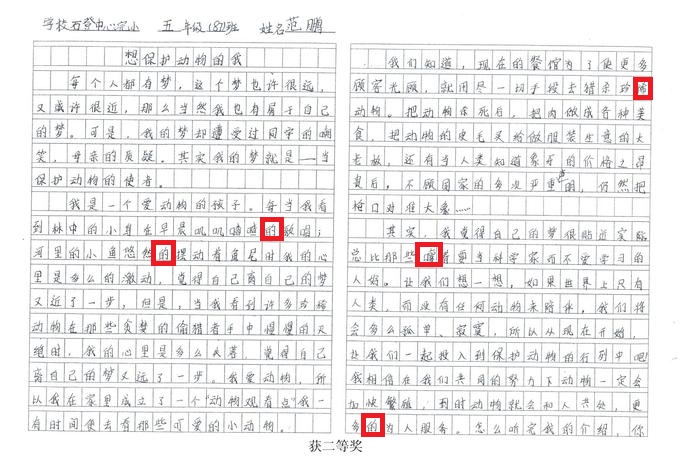 学校石登中心完小 五年级(87)班 姓名范鹏
想保护动物的我
每个人都有梦,这个梦也许很远,
又或许很近,那么当然我也有属于自己
的梦。可是,我的梦却遭受过同学的嘲
笑,母亲的质疑。其实我的梦就是一当
保护动物的使者。
我是一个爱动物的孩子。每当我看
到林中的小鸟在早晨叽叽喳喳的歌唱;
河里的小鱼悠然的摆动着鱼尾时我的心
里是多么的激动,觉得自己离自己的梦
又近了一步,但是,当我看到许多珍稀
动物在那些贪婪的偷猎者手中慢慢的灭
绝时,我的心里是多么失落,觉得自己
离自己的梦又远了一步。我爱动物,所
以我在家里成立了一个“动物观看点”我一
有时间便去看那些可爱的小动物。
我们知道,现在的餐馆为了使更多
顾客光顾,就用尽一切手段去猎杀珍稀
动物。把动物杀死后,把肉做成各种美
食,把动物的皮毛买给做服装生意的大
老板,还有当人类知道象牙的价格之昂
贵后,不顾国家的多次严重声明,仍然把
枪口对准大象……
其实,我觉得自己的梦很贴近实际
总比那些嚷着要当科学家而不爱学习的
人好。让我们想一想,如果世界上只有
人类,而没有任何动物来陪伴,我们将
会多么孤单、寂寞,所以从现在开始,
让我们一起投入到保护动物的行列中吧!
我相信在我们共同的努力下动物一定会
加快繁殖,到时动物就会和人共处,更
多的为人服务。怎么听完我的介绍,你
获二等奖